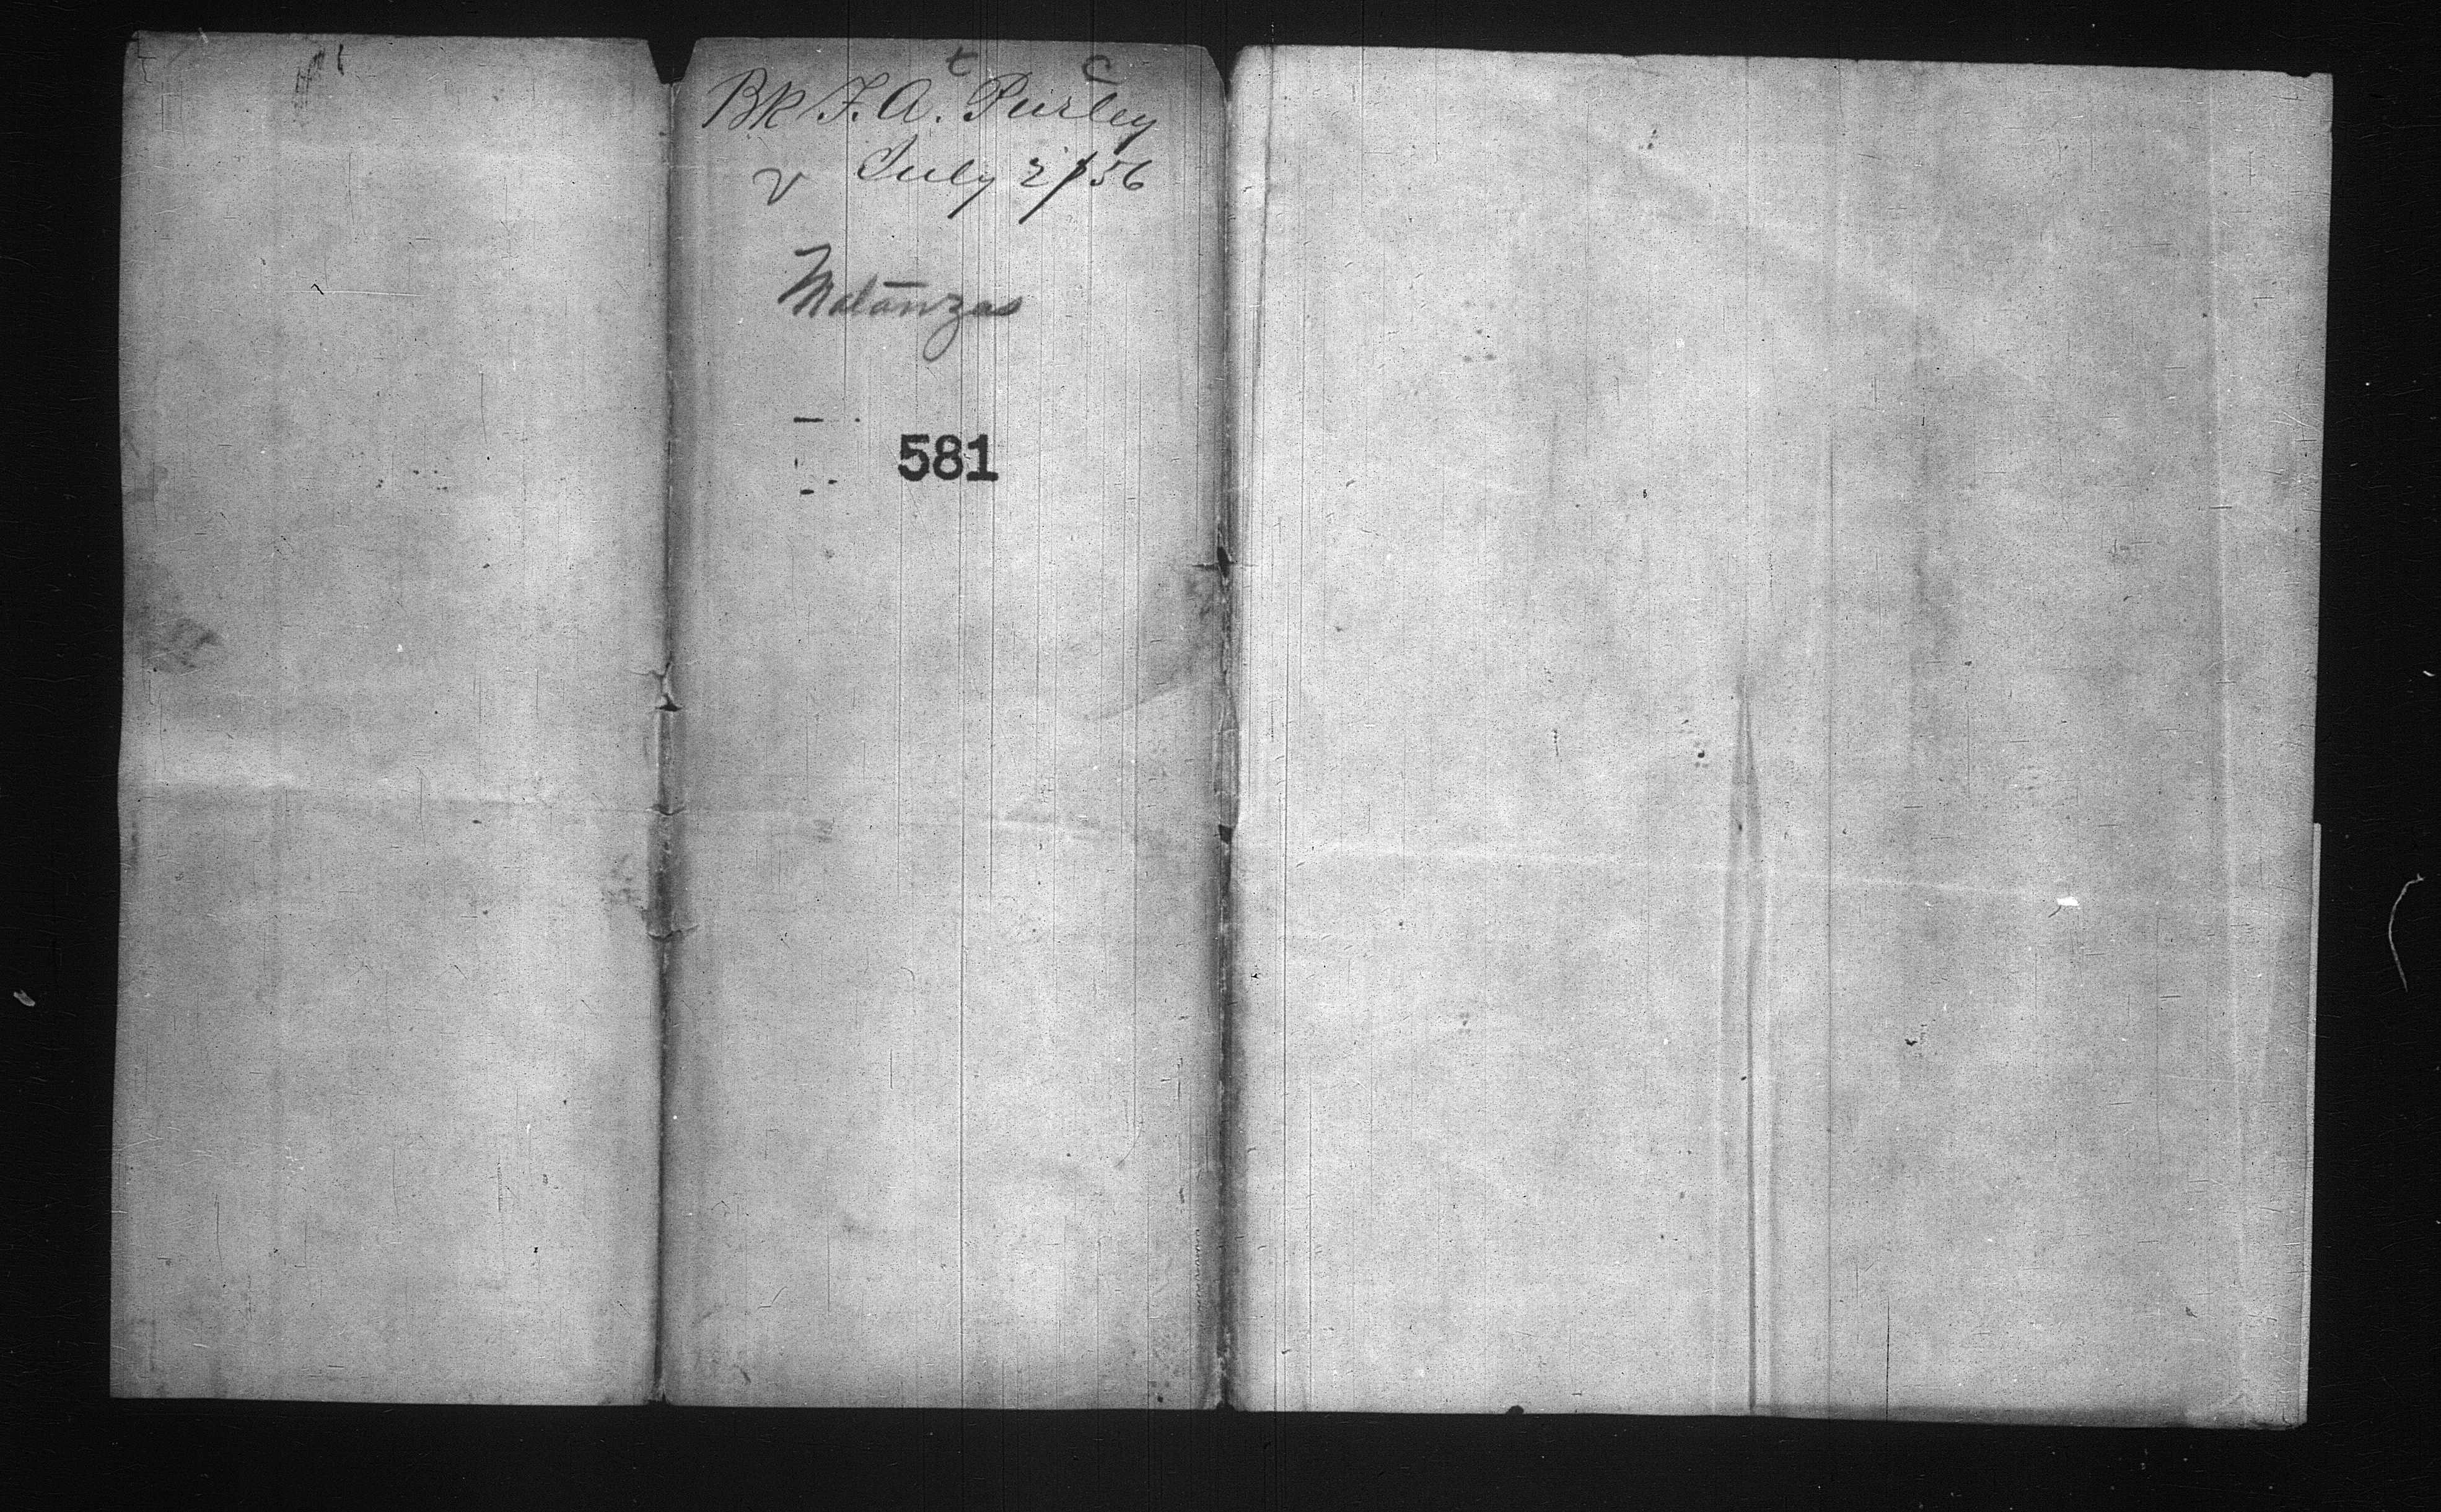 t c
Bk F. A. Purley
v July 2/56
Matanzas
581